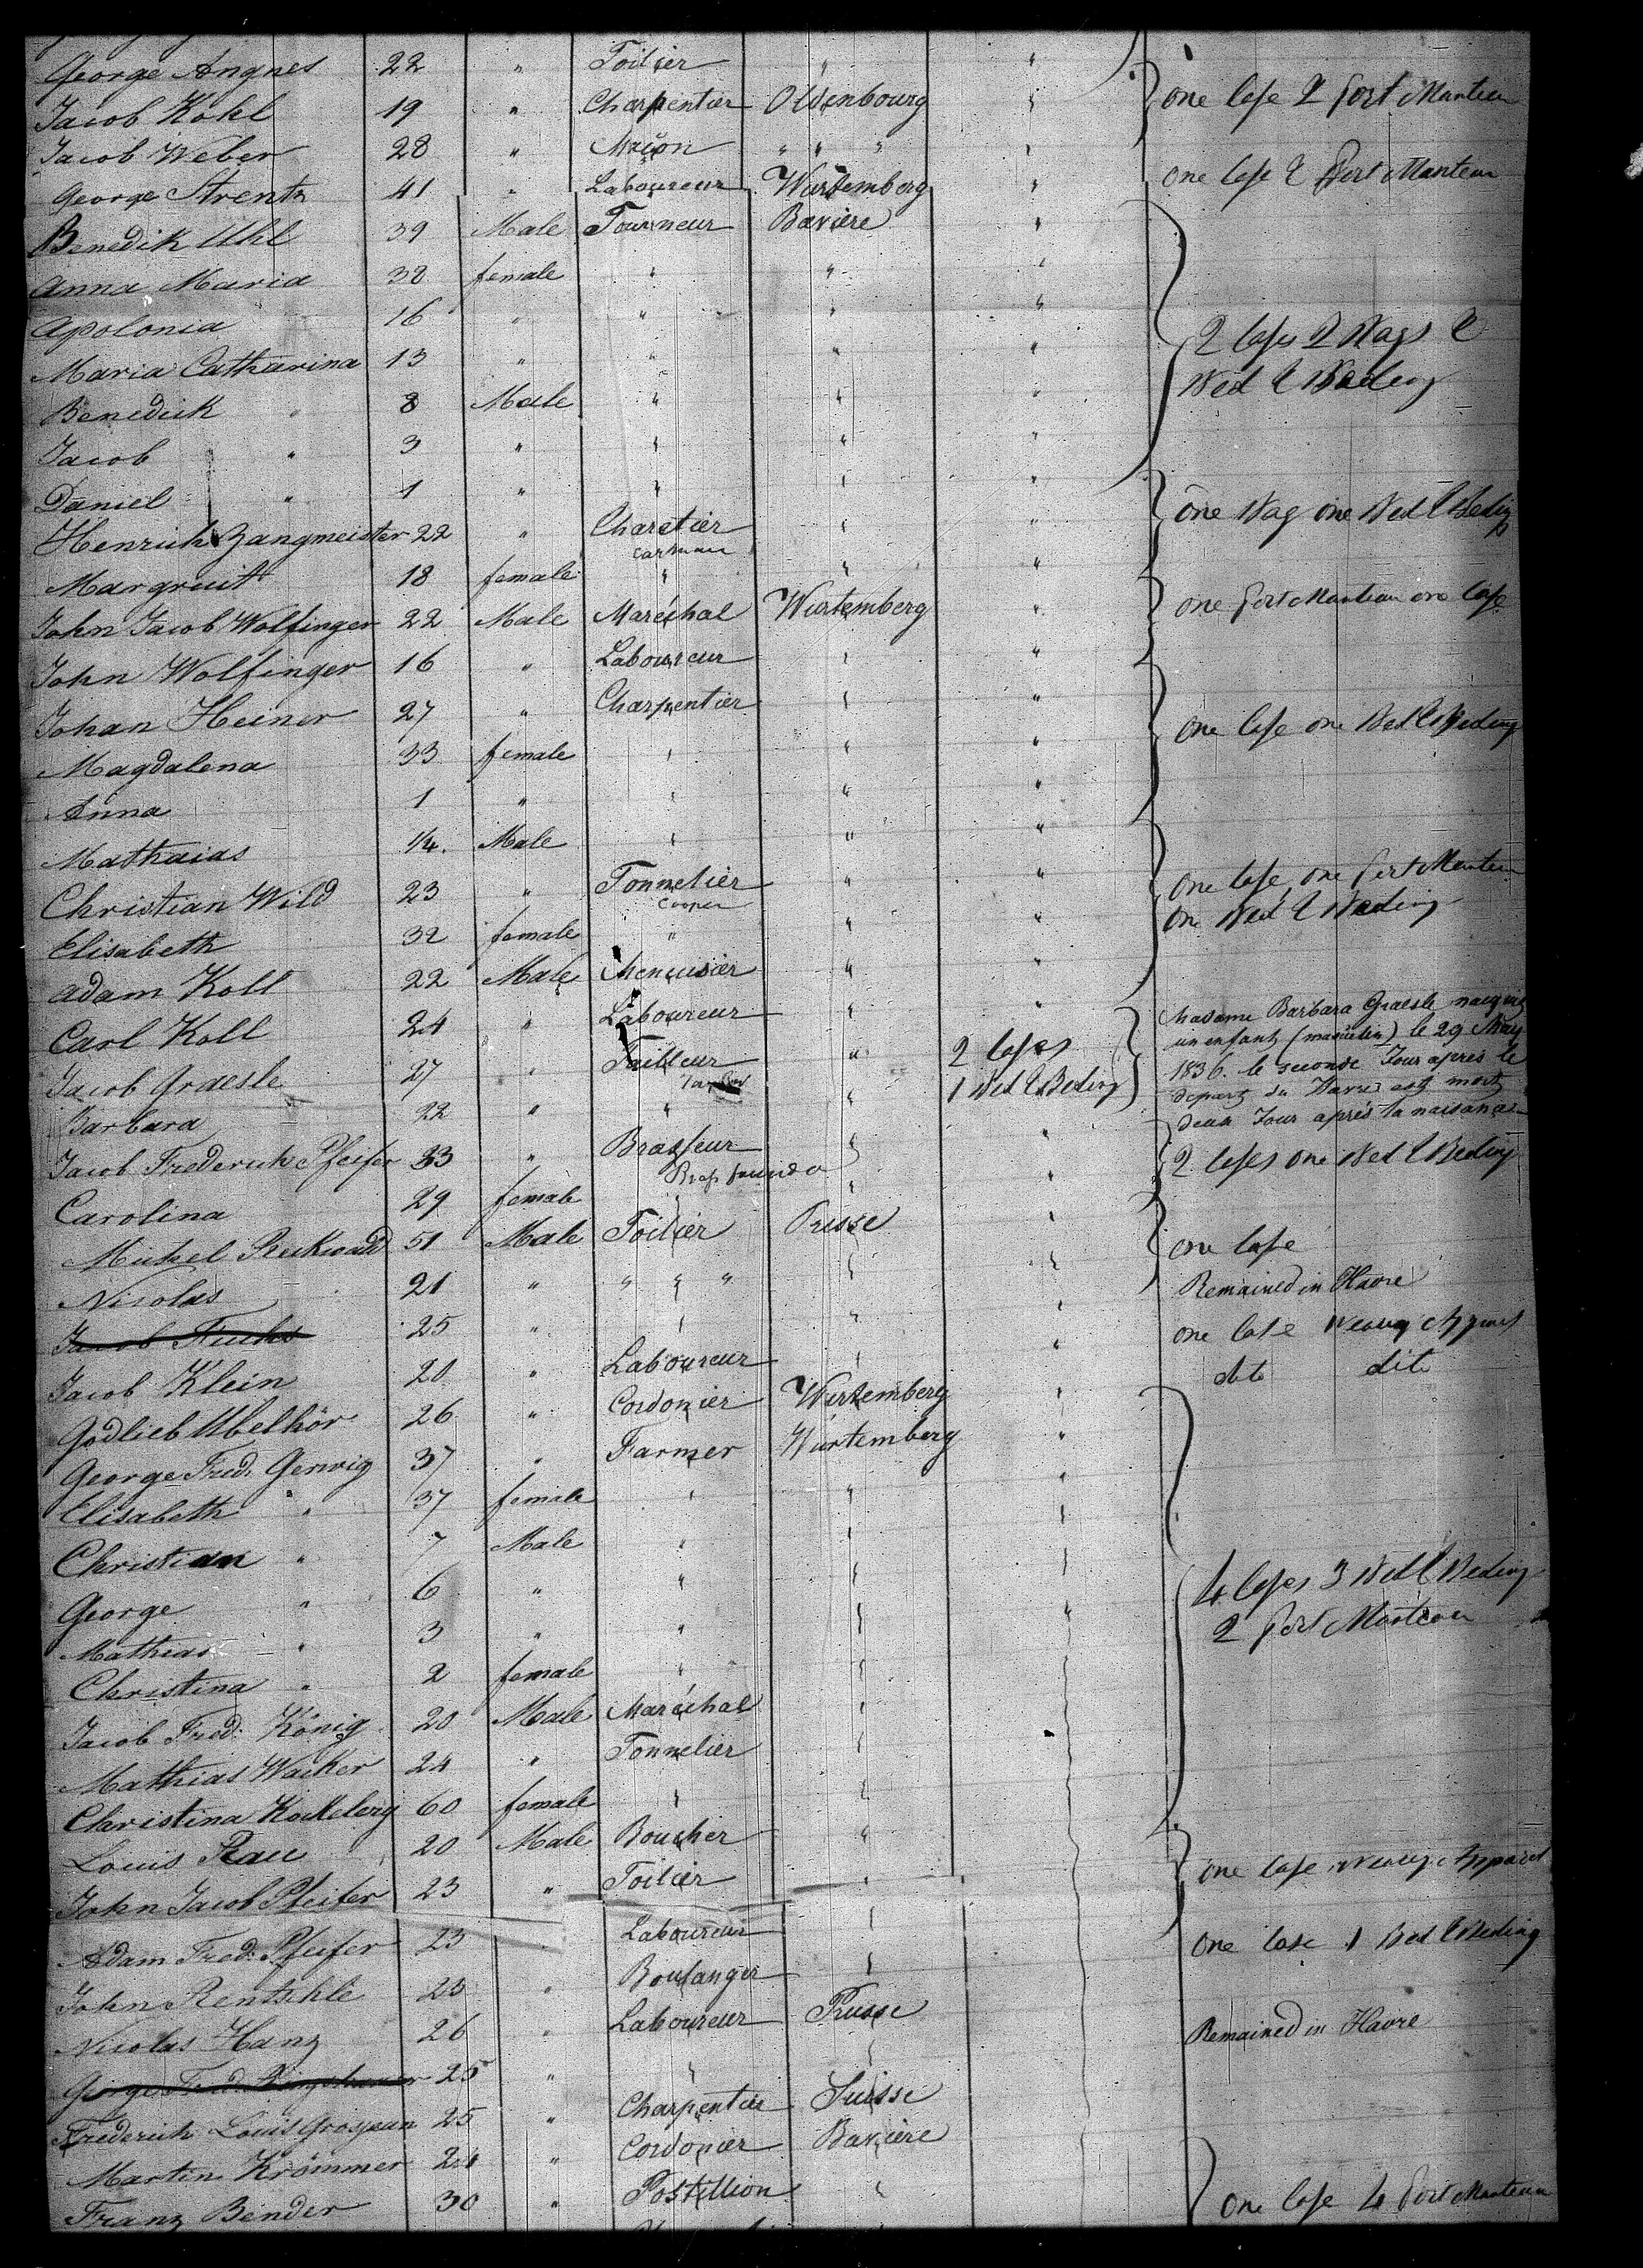 George Angnes 22 " Toilier " "
Jacob Kohl 19 " Charpentier Oldenbourg " one Case 2 Port Manteau
Jacob Weber 28 " Maçon " " " "
George Strentz 41 " Laboureur Wurtemberg " one Case & Port Manteau
Benedik Uhl 39 Male Tourneur Baviere "
Anna Maria 38 female " " "
Apolonia 16 " " " "
Maria Catharina 13 " " " " 2 Cases 2 Bags &
Benedick " 8 Male " " " Bed & Beding
Jacob " 3 " " " "
Daniel " 1 " " " "
Henrich Zangmeister 22 " Charetier " " One Bag one Bed & Beding
Carman
Margreuit 18 female " " "
John Jacob Wolfinger 22 Male Maréchal Wurtemberg " one Port Manteau one Case
John Wolfinger 16 " Laboureur " "
Johan Heiner 27 " Charpentier " "
Magdalena 33 female " " " One Case one Bed & Beding
Anna 1 " " " "
Mathaias 1/4. Male " " "
Christian Wild 23 " Tonnelier " " One Case one Port Manteau
Cooper
Elisabeth 32 female " " " One Bed & Beding
Adam Koll 22 Male Menuisier " "
Carl Koll 24 " Laboureur " "
Jacob Graesle 27 " Tailleur " 2 Cases
1 Bed & Beding
Barbara 22 " " "
Madame Barbara Graesle naquit
un enfant (masculin) le 29 May
1836. le seconde Jour apres le
depart du Havre est mort
deux Jour aprés la naisance
Jacob Frederick Pfeifer 33 " Brasseur " " 2 Cases one Bed & Beding
Carolina 29 female " " "
Michel 51 Male Toilier Prusse " One Case
Nicolas 21 " " " " " "
Jacob Fuchs 25 " " " " Remained in Havre
Jacob Klein 20 " Laboureur " " one Case Wearing Apparel
Godlieb Ubelhör 26 " Cordonier Wurtemberg " dito dito
George Fred. Gerwig 37 " Farmer Wurtemberg "
Elisabeth " 37 female " " "
Christian " 7 Male " " "
George " 6 " " " " 4 Cases 3 Bed & Beding
Mathias " 3 " " " " 2 Port Manteau
Christina " 2 female " "
Jacob Fred. König 20 Male Maréchal "
Mathias Wacker 24 " Tonnelier "
Christina 60 female " "
Louis Rau 20 Male Boucher "
John Jacob Pfeifer 23 " Toilier " " One Case Wearing Apparel
Adam Fred. Pfeifer 23 " Laboureur "
John Rentschle 23 " Boulanger " One Case 1 Bed & Beding
Nicolas Hanz 26 " Laboureur Prusse
George Fred. 25 " " " Remained in Havre
Frederich Louis Grosjean 25 " Charpentier Suisse
Martin Krömmer 24 " Cordonier Baviere
Franz Bender 30 " Postillion " One Case 4 Port Manteau